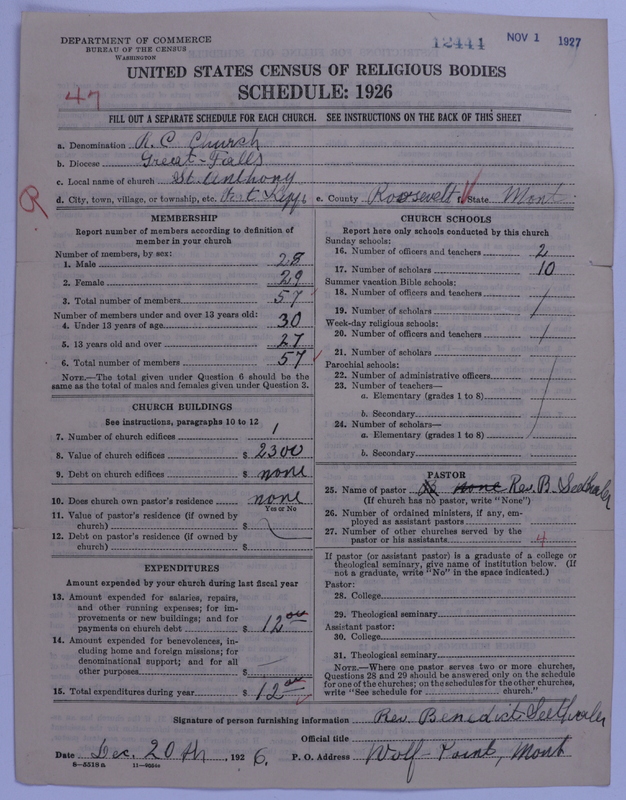 DEPARTMENT OF COMMERCE
BUREAU OF THE CENSUS
WASHINGTON
12441 NOV 1 1927
UNITED STATES CENSUS OF RELIGIOUS BODIES
47
SCHEDULE: 1926
FILL OUT A SEPARATE SCHEDULE FOR EACH CHURCH. SEE INSTRUCTIONS ON THE BACK OF THIS SHEET
a. Denomination R. C. Church
b. Diocese Great-Falls
c. Local name of church St. Anthony
R
d. City, town, village, or township, etc. e. County Roosevelt f. State Mont
MEMBERSHIP
Report number of members according to definition of
member in your church
Number of members, by sex:
1. Male 28
2. Female 29
3. Total number of members 57
Number of members under and over 13 years old:
4. Under 13 years of age 30
5. 13 years old and over 27
6. Total number of members 57
NOTE.—The total given under Question 6 should be the
same as the total of males and females given under Question 3.
CHURCH BUILDINGS
See instructions, paragraphs 10 to 12
7. Number of church edifices 1
8. Value of church edifices $ 2300
9. Debt on church edifices $ none
10. Does church own pastor's residence none
Yes or No
11. Value of pastor's residence (if owned by
church) $
12. Debt on pastor's residence (if owned by
church) $
EXPENDITURES
Amount expended by your church during last fiscal year
13. Amount expended for salaries, repairs,
and other running expenses; for im-
provements or new buildings; and for
payments on church debt $ 12 00
14. Amount expended for benevolences, in-
cluding home and foreign missions; for
denominational support; and for all
other purposes $
15. Total expenditures during year $ 12 00
CHURCH SCHOOLS
Report here only schools conducted by this church
Sunday schools:
16. Number of officers and teachers 2
17. Number of scholars 10
Summer vacation Bible schools:
18. Number of officers and teachers
19. Number of scholars
Week-day religious schools:
20. Number of officers and teachers
21. Number of scholars
Parochial schools:
22. Number of administrative officers
23. Number of teachers—
a. Elementary (grades 1 to 8)
b. Secondary
24. Number of scholars—
a. Elementary (grades 1 to 8)
b. Secondary
PASTOR
25. Name of pastor none Rev. B. Seethaler
(If church has no pastor, write "None")
26. Number of ordained ministers, if any, em-
ployed as assistant pastors
27. Number of other churches served by the
pastor or his assistants 4
If pastor (or assistant pastor) is a graduate of a college or
theological seminary, give name of institution below. (If
not a graduate, write "No" in the space indicated.)
Pastor:
28. College
29. Theological seminary
Assistant pastor:
30. College
31. Theological seminary
NOTE.—Where one pastor serves two or more churches,
Questions 28 and 29 should be answered only on the schedule
for one of the churches; on the schedules for the other churches,
write "See schedule for church."
Signature of person furnishing information Rev. Benedict Seethaler
Official title
Date Dec. 20th, 1926. P. O. Address Wolf-Point, Mont
8-5518a 11-9004